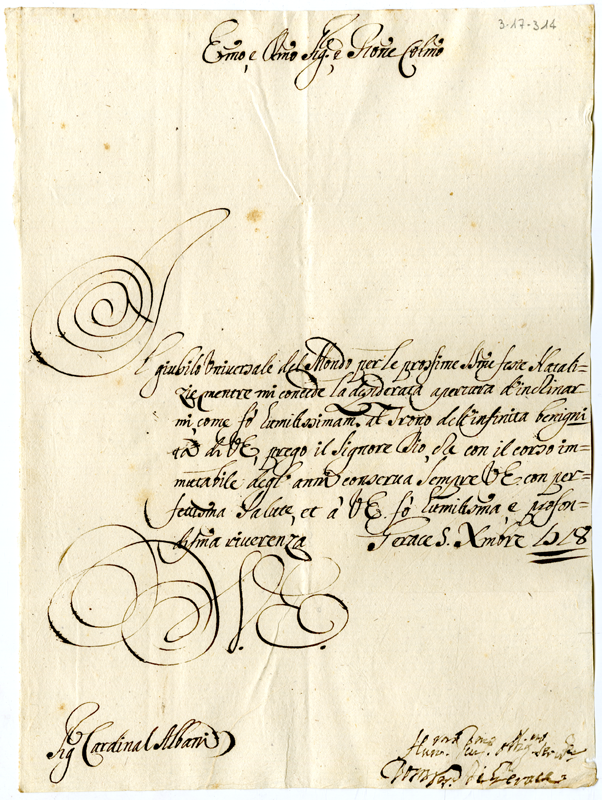 3-17-314
Emo, e Rmo Sig.r e Prone Colmo
Il giubilo Universale del Mondo per le prossime SSme feste Natali=
zie mentre mi concede la desiderata apertura d'inclinar
mi, come fò humilissimam.te al Trono dell'infinita benigni
tà di VE, prego il Signore Dio, che con il corso im=
mutabile degl'anni conserua sempre VE con per=
fettissima salute, et à VE fò humilissima e profon=
dissma riuerenza Gerace 5. Xmbre 1718
D.V.E.
Sig. Cardinal Albani
Hum.
di Gerace